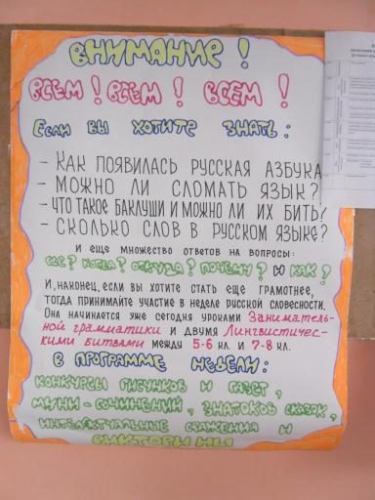 ВНИМАНИЕ!
ВСЕМ! ВСЕМ! ВСЕМ!
Если вы хотите знать:
- КАК ПОЯВИЛАСЬ РУССКАЯ АЗБУКА
- МОЖНО ЛИ СЛОМАТЬ ЯЗЫК?
- ЧТО ТАКОЕ БАКЛУШИ И МОЖНО ЛИ ИХ БИТЬ?
- СКОЛЬКО СЛОВ В РУССКОМ ЯЗЫКЕ?
И ЕЩЕ МНОЖЕСТВО ОТВЕТОВ НА ВОПРОСЫ:
ГДЕ? КОГДА? ОТКУДА? ПОЧЕМУ? И КАК?
И, НАКОНЕЦ, ЕСЛИ ВЫ ХОТИТЕ СТАТЬ ЕЩЕ ГРАМОТНЕЕ,
ТОГДА ПРИНИМАЙТЕ УЧАСТИЕ В НЕДЕЛЕ РУССКОЙ СЛОВЕСНОСТИ.
Она НАЧИНАЕТСЯ УЖЕ СЕГОДНЯ УРОКАМИ Заниматель-
ной грамматики и двумя Лингвистичес-
кими битвами между 5-6 кл. и 7-8 кл.
В ПРОГРАММЕ НЕДЕЛИ:
КОНКУРСЫ РИСУНКОВ И ГАЗЕТ,
МИНИ-СОЧИНЕНИЙ, ЗНАТОКОВ СКАЗОК,
ИНТЕЛЛЕКТУАЛЬНЫЕ СРАЖЕНИЯ И
ВИКТОРИНЫ